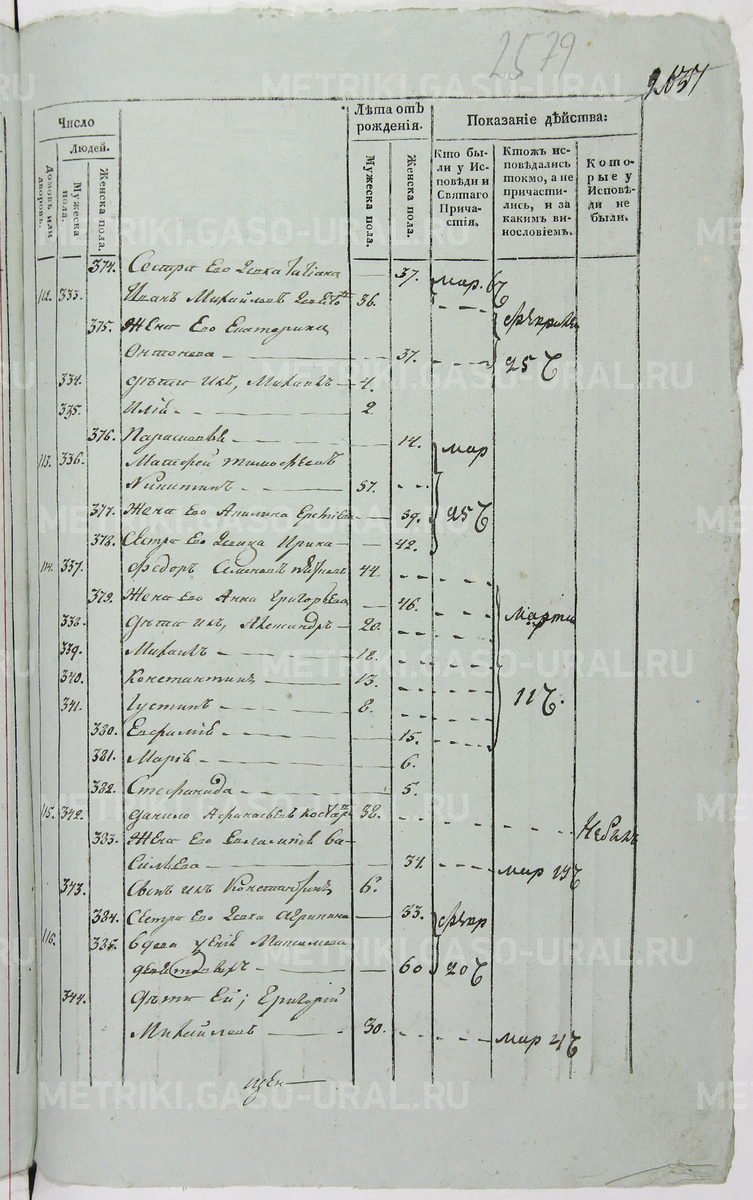 2579
2037
Число
Людей.
Домовъ или дворовъ.
Мужеска пола.
Женска пола.
Лѣта отъ рожденія.
Мужеска пола.
Женска пола.
Показаніе дѣйства:
Кто бы-
ли у Ис-
повѣди и
Святаго
Прича-
стія.
Ктожъ ис-
повѣдались
токмо, а не
причасти-
лись, и за
какимъ ви-
нословіемъ.
Кото-
рые у
Исповѣ-
ди не
были.
374. Сестра Его Девка Татіана 37. мар. 6
112. 333. Иванъ Михайловъ 36.
375. Жена Его Екатерина
Онтонева 37. 25
334. дѣти ихъ, Михаилъ 4.
335. Илія 2
376. Парасковья 14. мар
113. 336. Матфей Тимофеевъ
Никитинъ 57.
377. Жена Его 59. 25
378. Сестра Его Девица Ирина 42.
114. 337. Федоръ Семеновъ 44.
379. Жена Его Анна Григорьева 46. Марта
338. Дѣти ихъ, Александръ 20.
339. Михаилъ 18.
340. Константинъ 13.
341. Іустинъ 8. 11
380. Евфимія 15.
381. Марія 6.
382. Стефанида 5.
115. 342. Данило Афанасьевъ 38. Небылъ
383. Жена Его Евлампія Ва-
сильева 34. мар 19
343. Сынъ ихъ Константинъ 6.
384. Сестра Его Девка Агрипина 33.
116. 385. вдова Максимова
60 20
344. Дѣти Ей; Григорій
Михайловъ 30. мар 4
METRIKI.GASO-URAL.RU